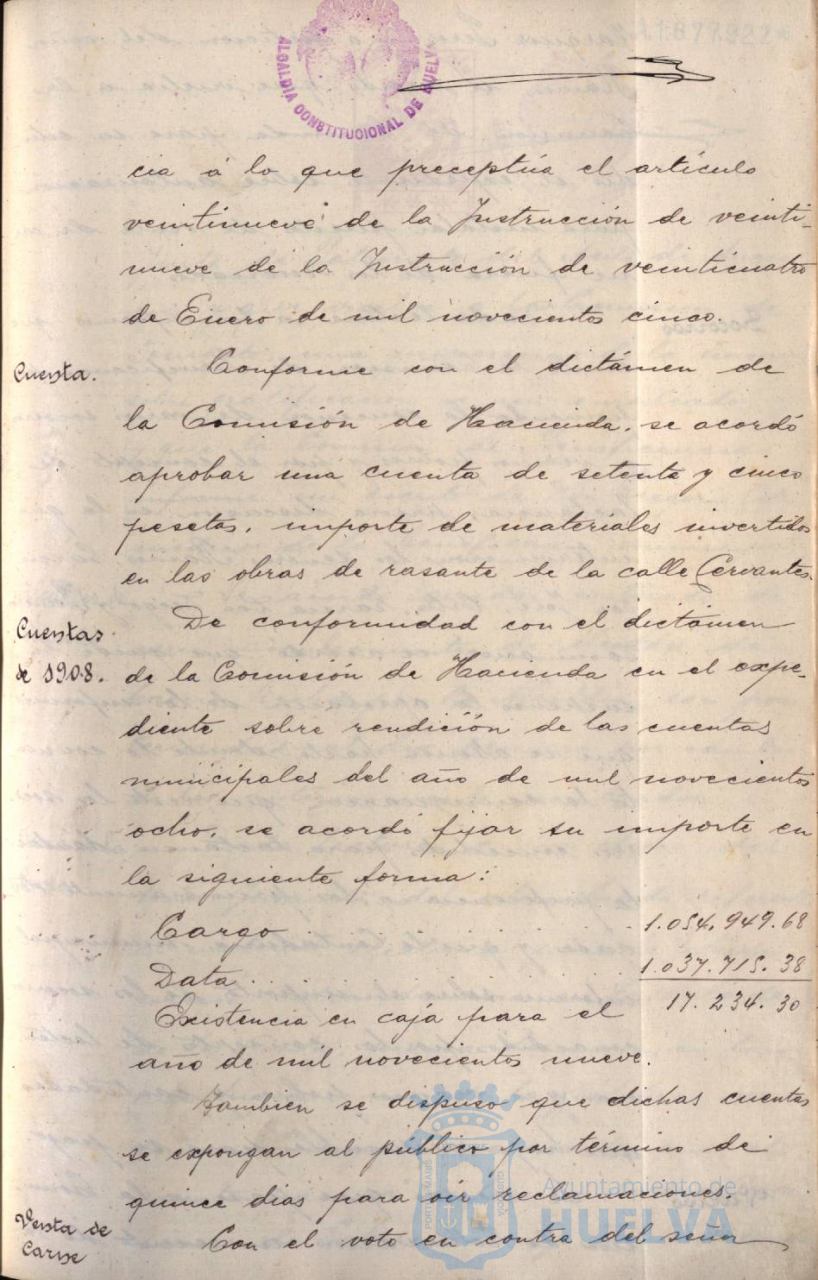 11877922
ALCALDIA CONSTITUCIONAL DE HUELVA
cia á lo que preceptúa el artículo
veintinueve de la Instrucción de veinti-
nueve de la Instrucción de veinticuatro
de Enero de mil novecientos cinco.
Cuenta.
Conforme con el dictámen de
la Comisión de Hacienda, se acordó
aprobar una cuenta de setenta y cinco
pesetas, importe de materiales invertidos
en las obras de rasante de la calle Cervantes.
Cuentas
de 1908.
De conformidad con el dictámen
de la Comisión de Hacienda en el expe-
diente sobre rendición de las cuentas
municipales del año de mil novecientos
ocho, se acordó fijar su importe en
la siguiente forma:
Cargo 1.054.949.68
Data 1.037.715.38
Existencia en caja para el 17.234.30
año de mil novecientos nueve.
Tambien se dispuso que dichas cuentas
se expongan al público por término de
quince dias para oir reclamaciones.
Venta de
Carne
Con el voto en contra del señor
Ayuntamiento de
HUELVA